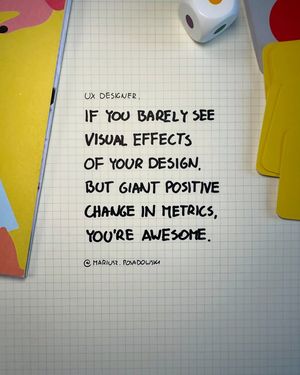 UX DESIGNER,
IF YOU BARELY SEE
VISUAL EFFECTS
OF YOUR DESIGN,
BUT GIANT POSITIVE
CHANGE IN METRICS,
YOU'RE AWESOME.
@MARIUSZ.POSADOWSKI